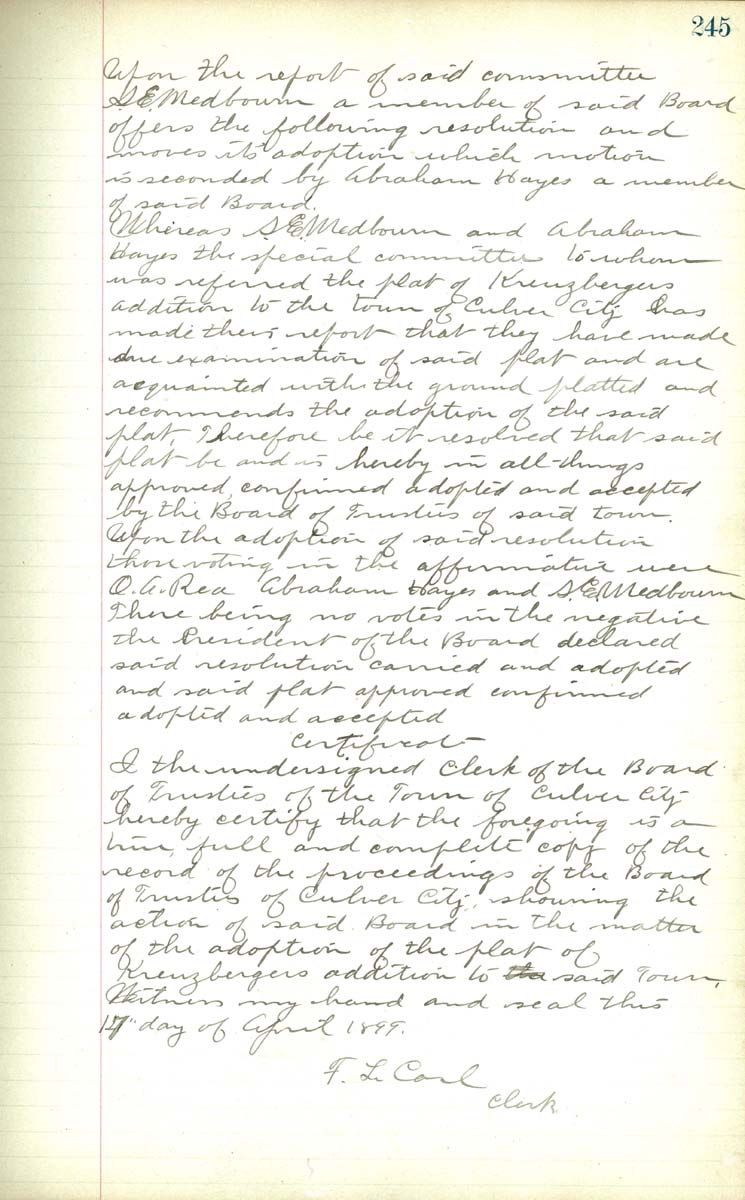 245
Upon the report of said committee
S.E. Medbourn a member of said Board
offers the following resolution and
moves its adoption which motion
is seconded by Abraham Hayes a member
of said Board.
Whereas S.E. Medbourn and Abraham
Hayes the special committee to whom
was referred the plat of Kreuzbergers
addition to the town of Culver City has
made their report that they have made
due examination of said plat and are
acquainted with the ground platted and
recommends the adoption of the said
plat, Therefore be it resolved that said
plat be and is hereby in all things
approved, confirmed adopted and accepted
by the Board of Trustees of said town.
Upon the adoption of said resolution
those voting in the affirmative were
O.A. Rea Abraham Hayes and S.E. Medbourn
There being no votes in the negative
the President of the Board declared
said resolution carried and adopted
and said plat approved confirmed
adopted and accepted
Certificate
I the undersigned Clerk of the Board
of Trustees of the Town of Culver City
hereby certify that the foregoing is a
true, full and complete copy of the
record of the proceedings of the Board
of Trustees of Culver City, showing the
action of said Board in the matter
of the adoption of the plat of
Kreuzbergers addition to the said Town,
Witness my hand and seal this
day of April 1899.
F. L. Carl
Clerk